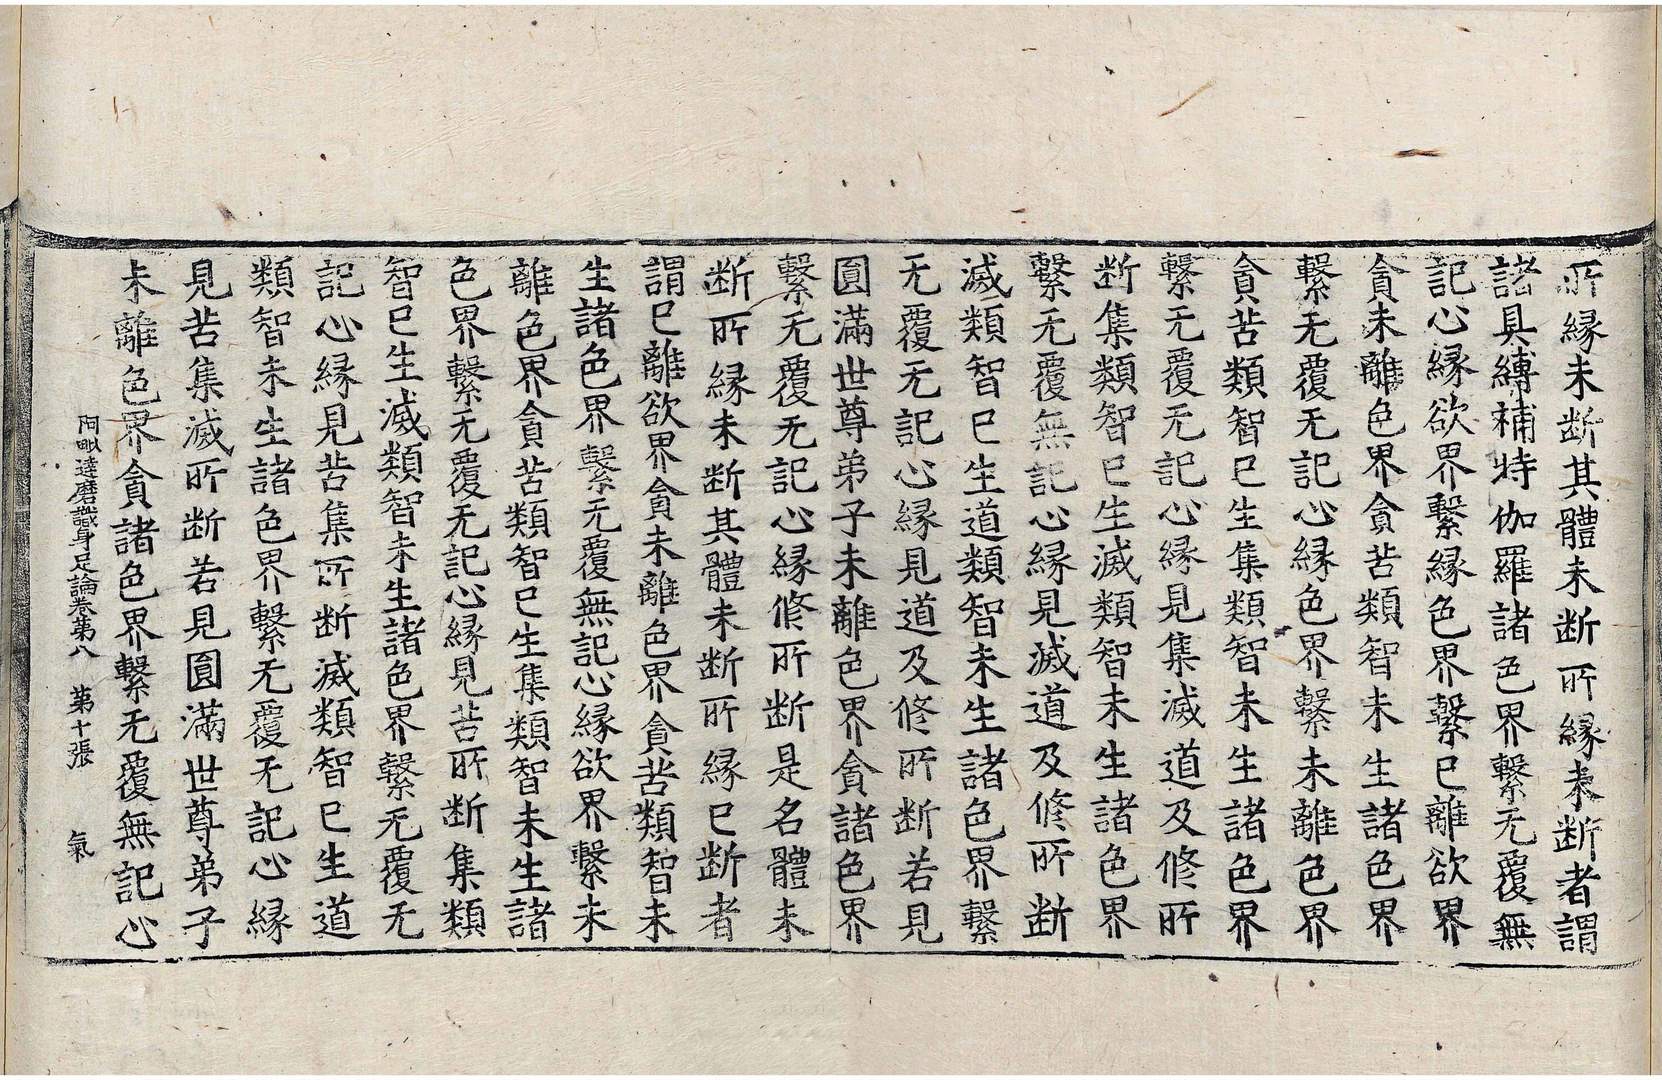 所縁未断其體未断所縁未断者謂
諸具縛補特伽羅諸色界繫无覆無
記心縁欲界繫縁色界繫已離欲界
貪未離色界貪苦類智未生諸色界
繫无覆无記心縁色界繫未離色界
貪苦類智已生集類智未生諸色界
繫无覆无記心縁見集滅道及修所
断集類智已生滅類智未生諸色界
繫无覆無記心縁見滅道及修所断
滅類智已生道類智未生諸色界繫
无覆无記心縁見道及修所断若見
圓滿世尊弟子未離色界貪諸色界
繫无覆无記心縁修所断是名體未
断所縁未断其體未断所縁已断者
謂已離欲界貪未離色界貪苦類智未
生諸色界繫无覆無記心縁欲界繫未
離色界貪苦類智已生集類智未生諸
色界繫无覆无記心縁見苦所断集類
智已生滅類智未生諸色界繫无覆无
記心縁見苦集所断滅類智已生道
類智未生諸色界繫无覆无記心縁
見苦集滅所断若見圓滿世尊弟子
未離色界貪諸色界繫无覆無記心
阿毗達磨識身足論卷第八 第十張 氣